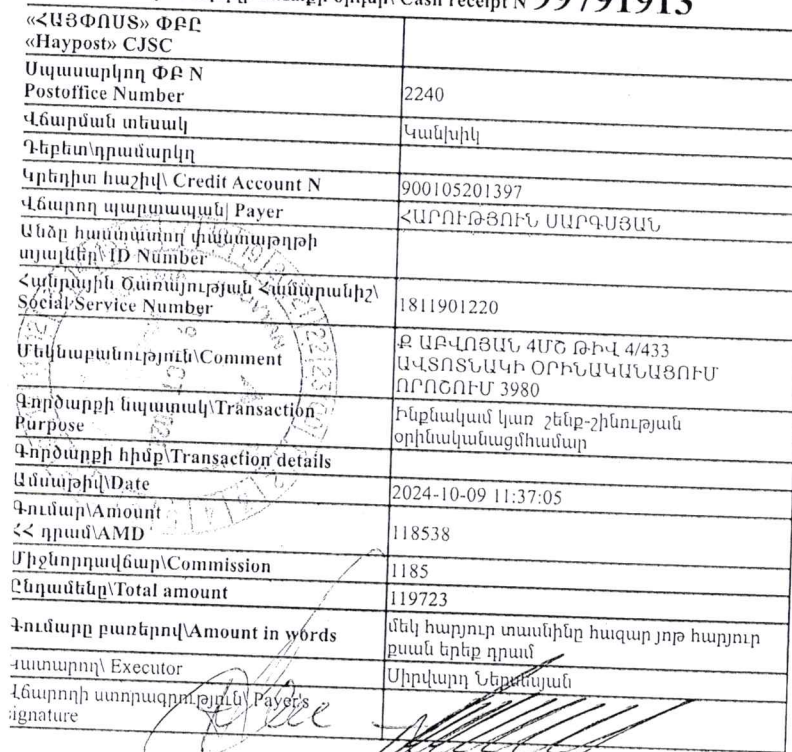 Cash receipt N 99791913
«ՀԱՅՓՈՍՏ» ՓԲԸ
«Haypost» CJSC
Սպասարկող ՓԲ N
Postoffice Number 2240
Վճարման տեսակ Կանխիկ
Դեբետ\դրամարկղ
Կրեդիտ հաշիվ\ Credit Account N 900105201397
Վճարող պարտապան| Payer ՀԱՐՈՒԹՅՈՒՆ ՍԱՐԳՍՅԱՆ
Անձը հաստատող փաստաթղթի
տվյալներ\ ID Number
Հանրային Ծառայության Համարանիշ\
Social Service Number 1811901220
Մեկնաբանություն\Comment
Ք ԱԲՎՈՅԱՆ 4ՄԾ ԹԻՎ 4/433
ԱՎՏՈՏՆԱԿԻ ՕՐԻՆԱԿԱՆԱՑՈՒՄ
ՈՐՈՇՈՒՄ 3980
Գործարքի նպատակ\Transaction
Purpose
Ինքնակամ կառ շենք-շինության
օրինականացմհամար
Գործարքի հիմք\Transaction details
Ամսաթիվ\Date 2024-10-09 11:37:05
Գումար\Amount
ՀՀ դրամ\AMD 118538
Միջնորդավճար\Commission 1185
Ընդամենը\Total amount 119723
Գումարը բառերով\Amount in words
մեկ հարյուր տասնինը հազար յոթ հարյուր
քսան երեք դրամ
Կատարող\ Executor Սիրվարդ Ներսեսյան
Վճարողի ստորագրություն\ Payer's
signature